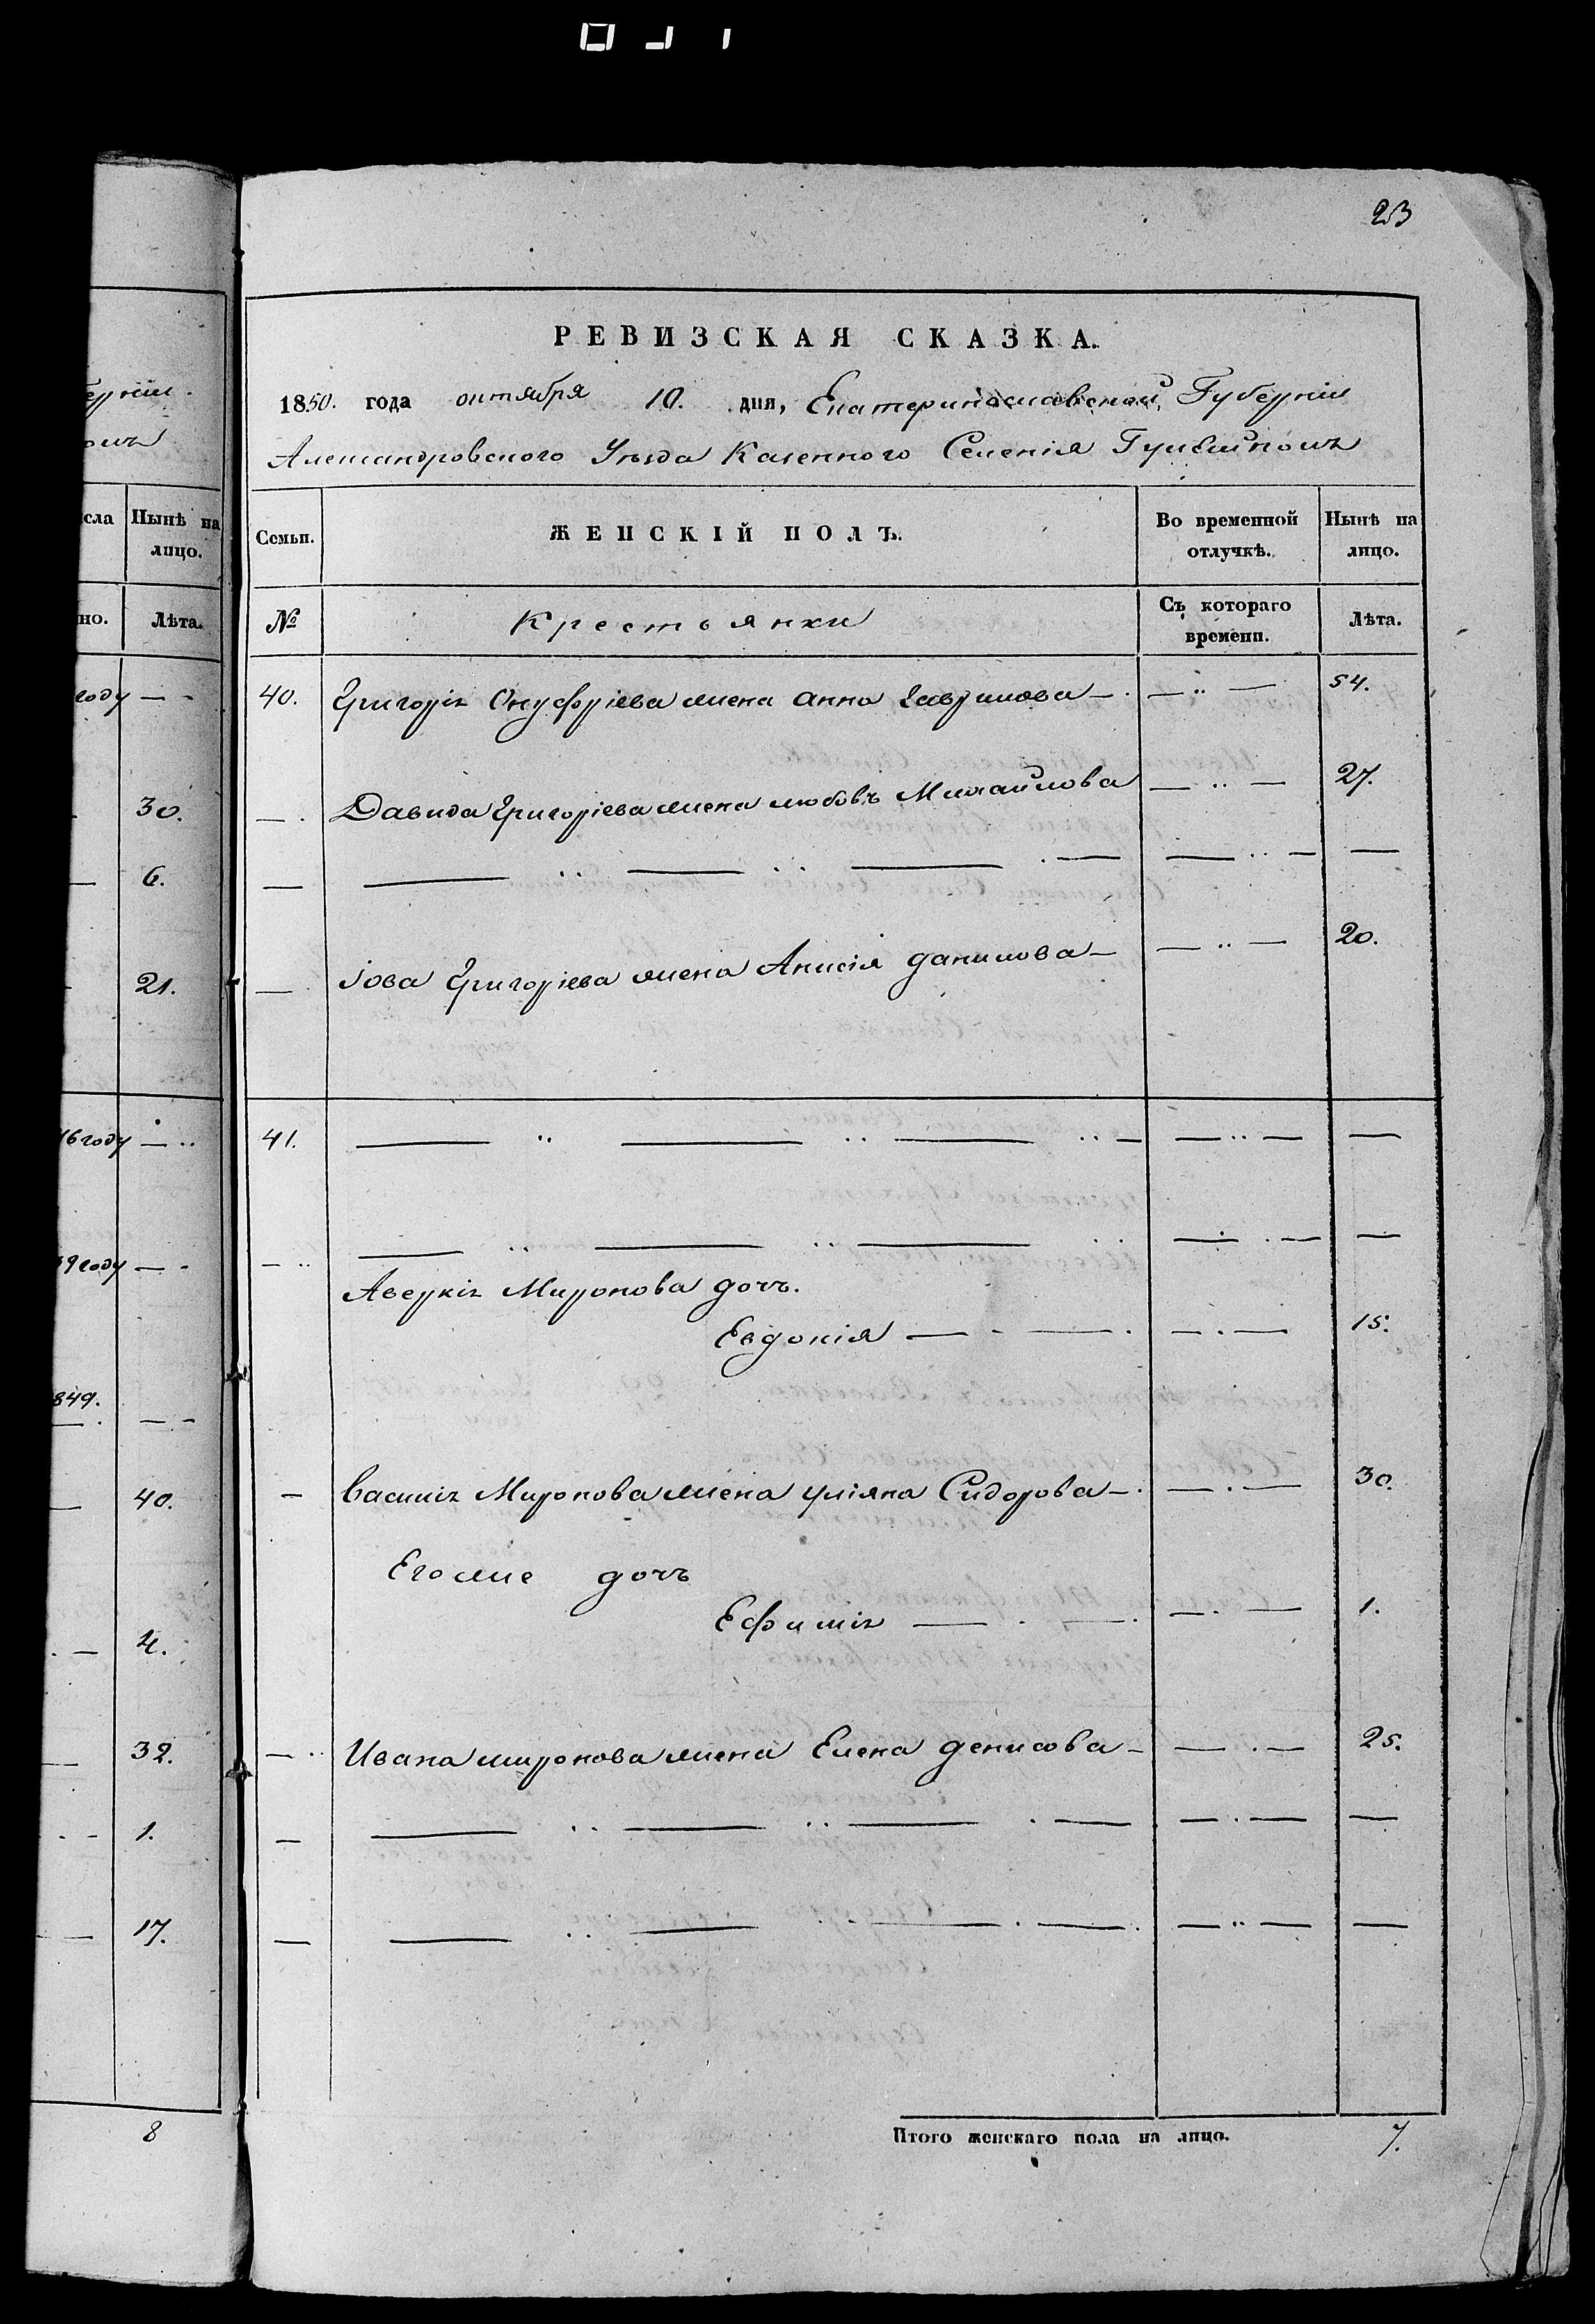 23
РЕВИЗСКАЯ СКАЗКА.
1850. года октября 10. дня, Екатеринославской Губернии
Александровского Уезда Казенного Селения
Семьи.
ЖЕНСКІЙ ПОЛЪ.
Во временной отлучкѣ.
Нынѣ на лицо.
№
Крестьянки
Съ котораго времени.
Лѣта.
40. Григорія Онуфріева жена Анна Гаврилова — 54.
— Давида Григоріева жена Любовь Михайлова 27.
— Іова Григоріева жена Анисія Данилова — 20.
41.
Аверкія Миронова дочь.
Евдокія — 15.
— Василія Миронова жена Уліяна Сидорова — 30.
Его же дочь
Ефимія — 1.
— Ивана Миронова жена Елена Денисова — 25.
Итого женскаго пола на лицо. 7.
сла
Нынѣ на
лицо.
но.
Лѣта.
году
30.
6.
21.
46 году
49 году
849.
40.
4.
32.
1.
17.
8